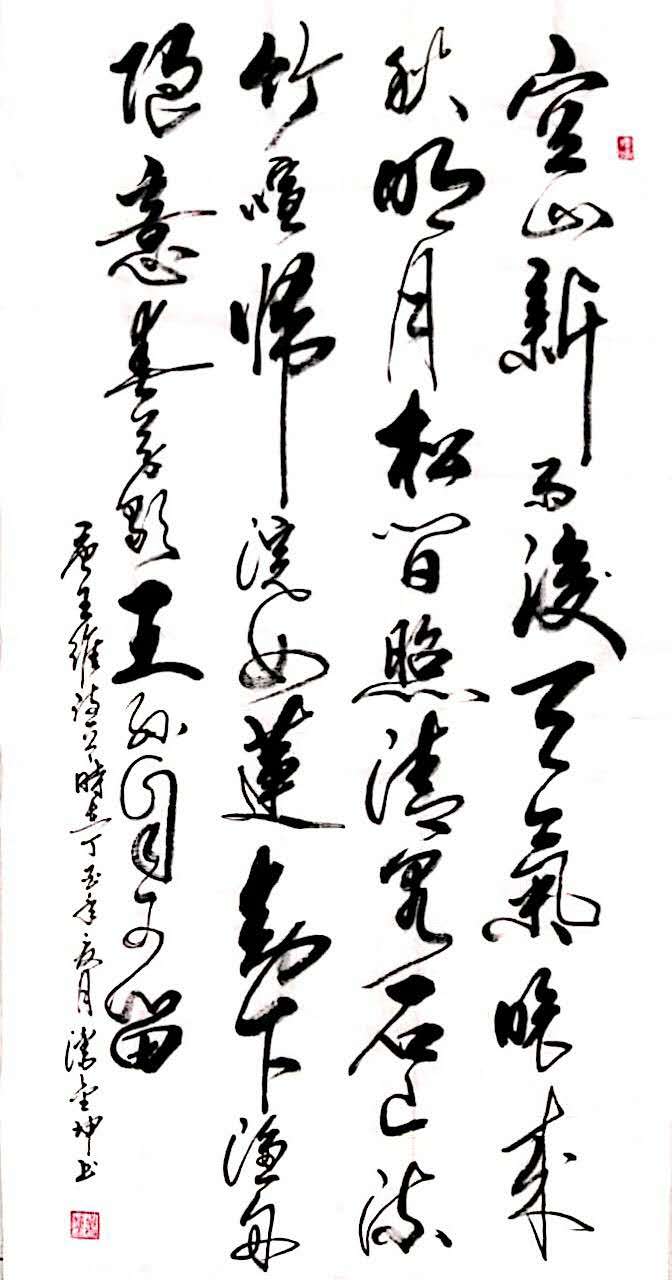 空山新雨後天氣晚來
秋明月松間照清泉石上流
竹喧歸浣女蓮動下漁舟
隨意春芳歇王孫自可留
唐王維詩 時在丁 年 月 金坤书